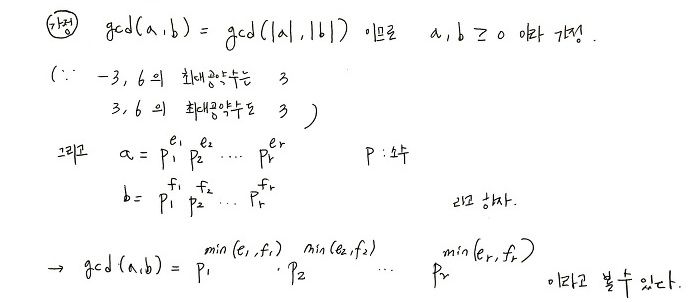 가정 gcd(a,b) = gcd(|a|,|b|) 이므로 a,b ≥ 0 이라 가정.
(∵ -3, 6 의 최대공약수는 3
3, 6 의 최대공약수도 3 )
그리고 a = p₁^e₁ p₂^e₂ ···· pᵣ^eᵣ p : 소수
b = p₁^f₁ p₂^f₂ ··· pᵣ^fᵣ 라고 하자.
→ gcd(a,b) = p₁^min(e₁,f₁) · p₂^min(e₂,f₂) ··· pᵣ^min(eᵣ,fᵣ) 이라고 볼 수 있다.